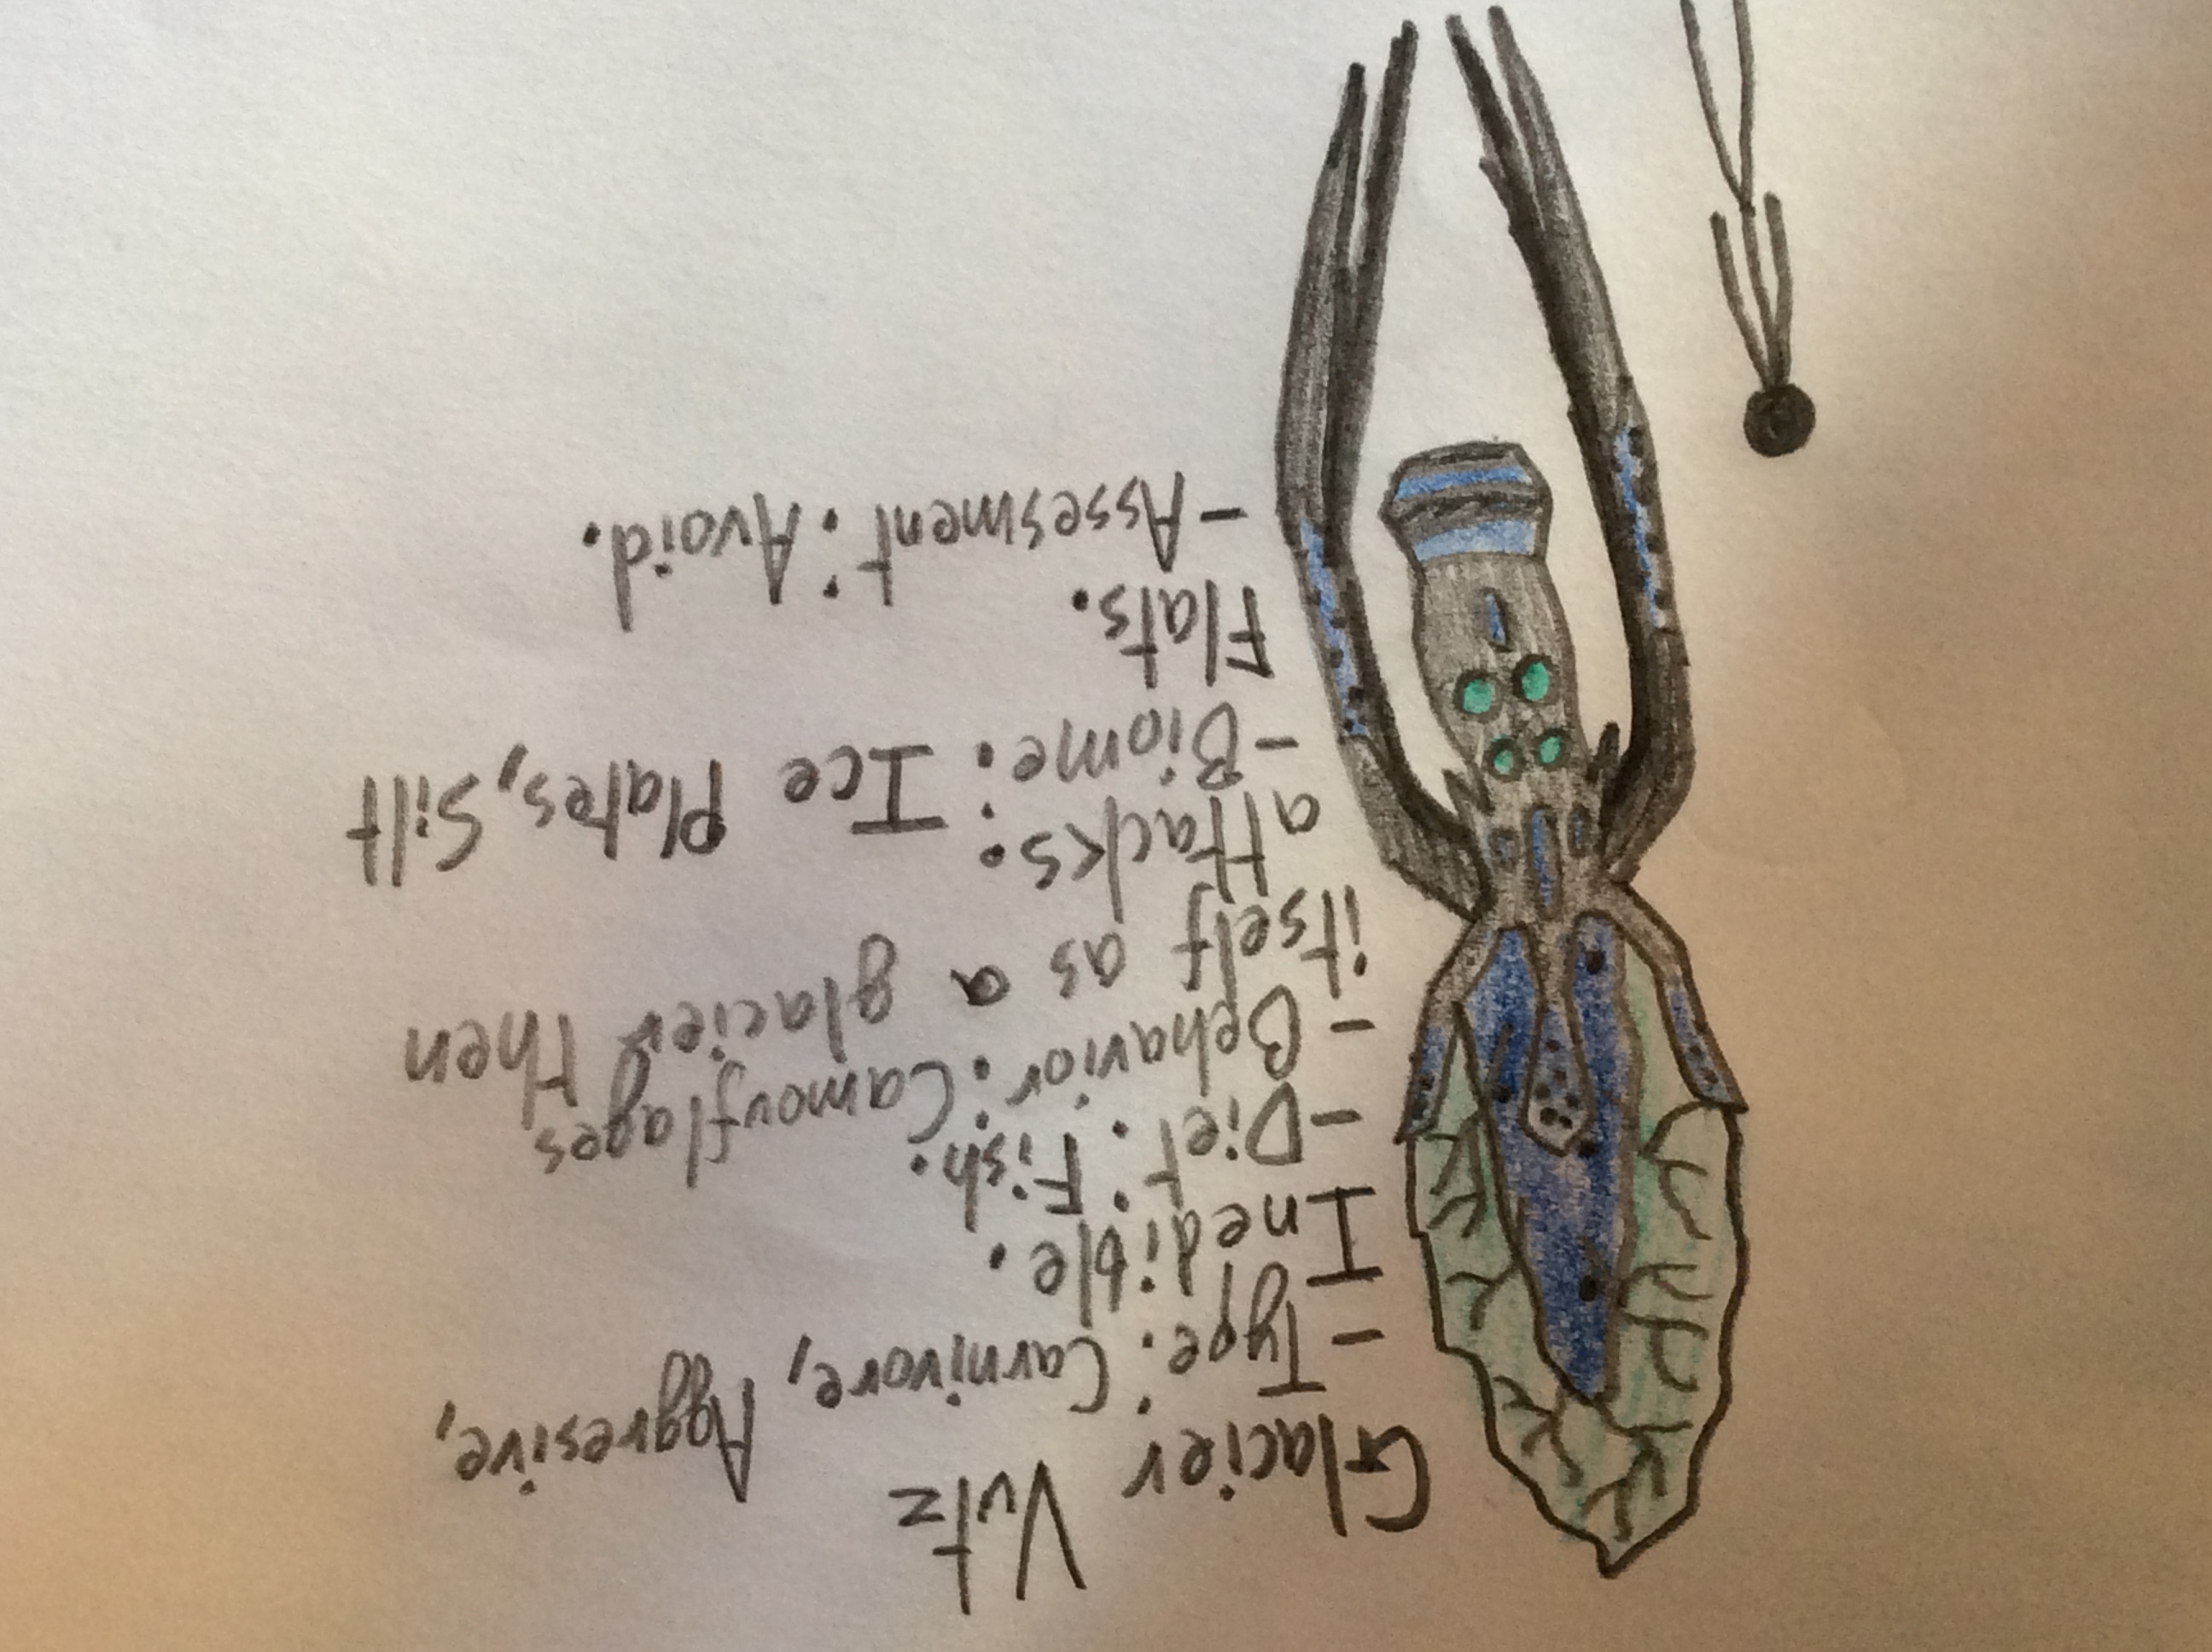 Glacier Vutz
- Type: Carnivore, Aggresive,
Inedible.
- Diet: Fish.
- Behavior: Camouflages
itself as a glacier then
attacks.
- Biome: Ice Plates, Silt
Flats.
- Assesment: Avoid.